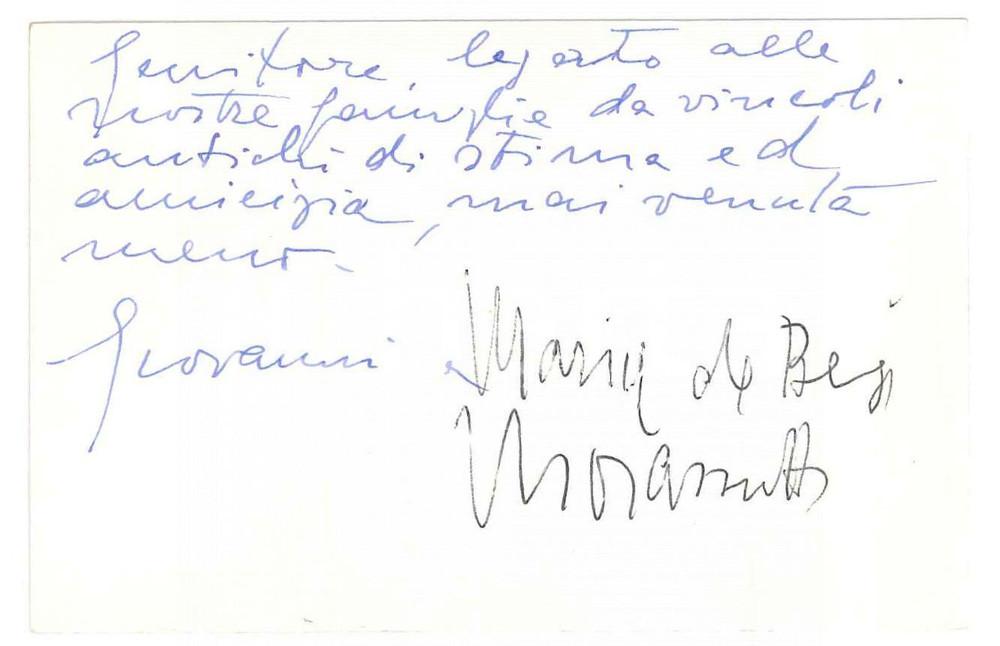 Genitore, legato alle
nostre famiglie da vincoli
antichi di stima ed
amicizia, mai venuta
meno.
Giovanni e Maria de Besi
Morassutti